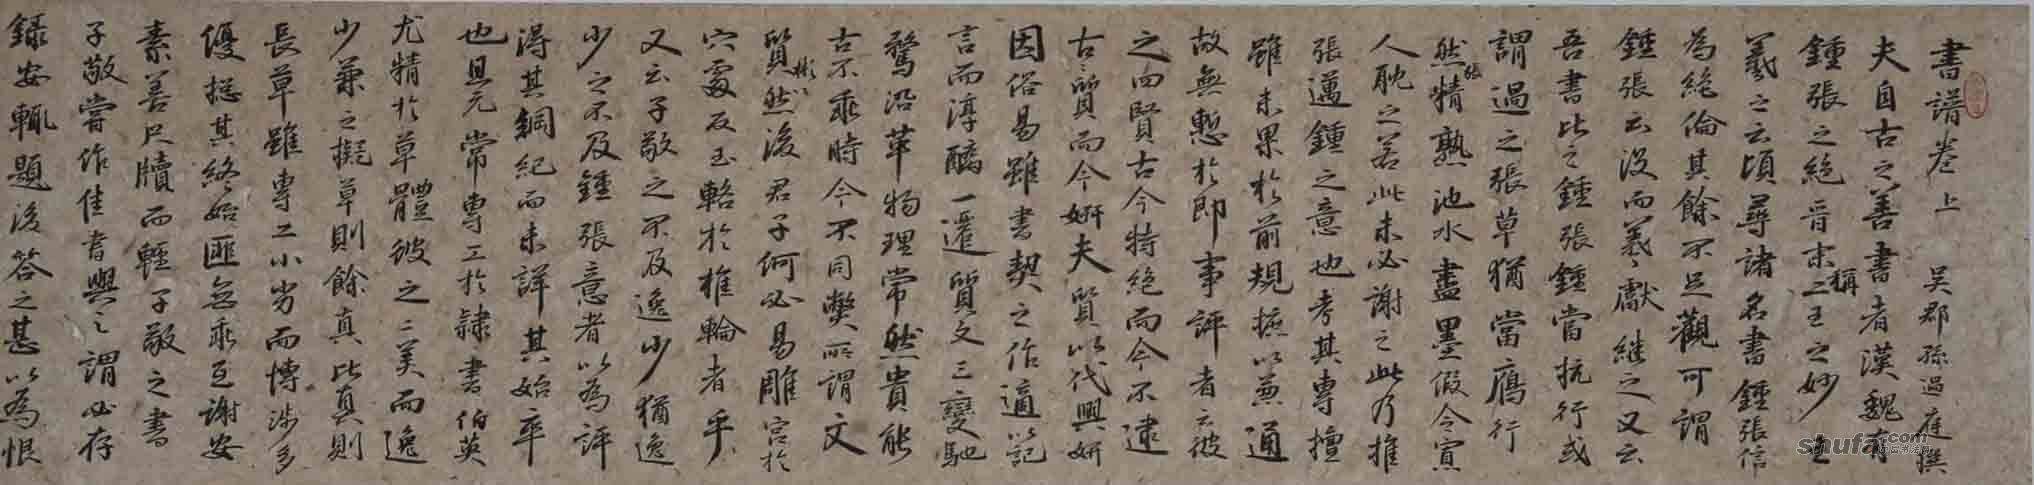 書譜卷上 吳郡孫過庭撰
夫自古之善書者漢魏有
鍾張之絕晉末稱二王之妙王
羲之云頃尋諸名書鍾張信
為絕倫其餘不足觀可謂
鍾張云沒而羲獻繼之又云
吾書比之鍾張鍾當抗行或
謂過之張草猶當鴈行
然張精熟池水盡墨假令寡
人耽之若此未必謝之此乃推
張邁鍾之意也考其專擅
雖未果於前規摭以兼通
故無慙於即事評者云彼
之四賢古今特絕而今不逮
古々質而今妍夫質以代興妍
因俗易雖書契之作適以記
言而淳醨一遷質文三變馳
騖沿革物理常然貴能
古不乖時今不同弊所謂文
質彬々然後君子何必易雕宮於
穴處反玉輅於椎輪者乎
又云子敬之不及逸少猶逸
少之不及鍾張意者以為評
得其綱紀而未詳其始卒
也且元常專工於隸書伯英
尤精於草體彼之二美而逸
少兼之擬草則餘真比真則
長草雖專工小劣而博涉多
優揔其終始匪無乖互謝安
素善尺牘而輕子敬之書
子敬嘗作佳書與之謂必存
錄安輒題後答之甚以為恨
shufa.com